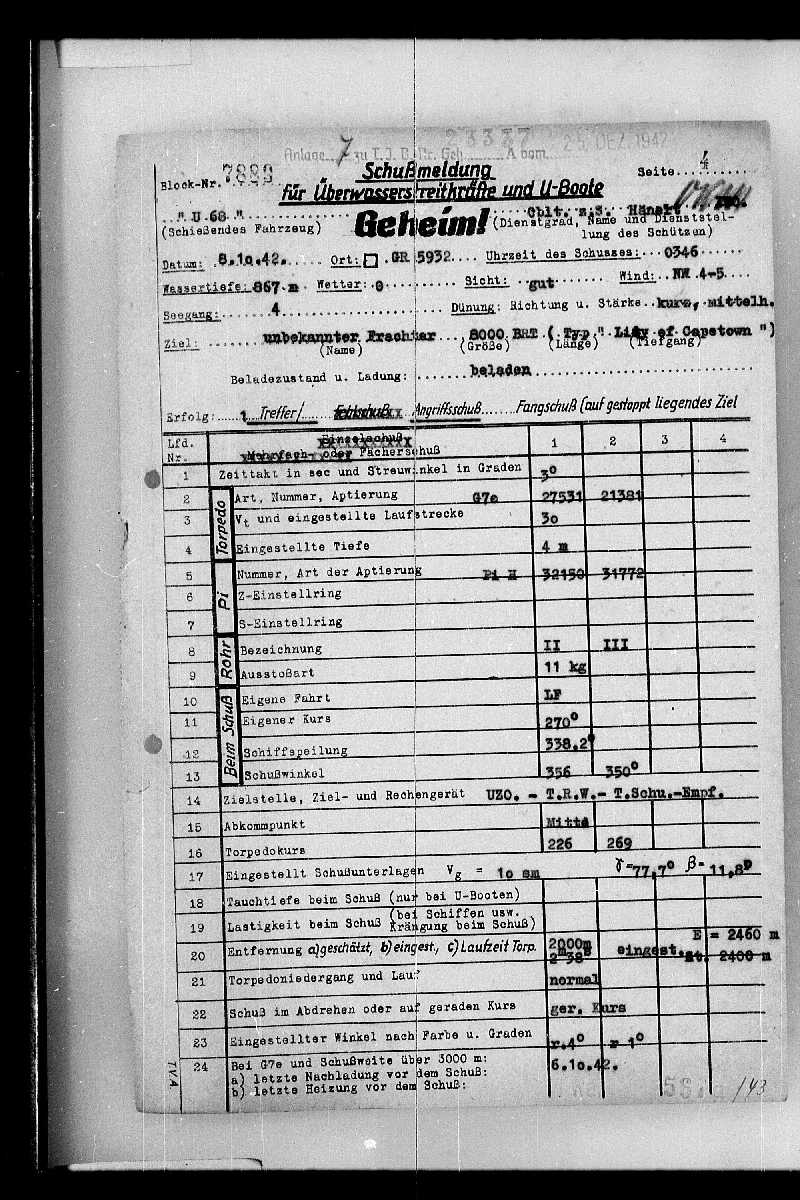 Anlage 7 zu T.J. Nr. Geh. A vom 25. DEZ. 1942
Block-Nr. 7889
Schußmeldung
Seite 4
für Überwasserstreitkräfte und U-Boote
" U 68 "
Geheim!
Oblt. z.S.
(Schießendes Fahrzeug)
(Dienstgrad, Name und Dienststel-
lung des Schützen)
Datum: 8.10.42. Ort: GR 5932 Uhrzeit des Schusses: 0346
Wassertiefe: 867 m Wetter: 0 Sicht: gut Wind: NW 4-5
Seegang: 4 Dünung: Richtung u. Stärke kurz, mittelh.
Ziel: unbekannter Frachter 8000 BRT ( Typ " City of Capetown ")
(Name) (Größe) (Länge) (Tiefgang)
Beladezustand u. Ladung: beladen
Erfolg: 1 Treffer/ Fehlschuß Angriffsschuß Fangschuß (auf gestoppt liegendes Ziel
Lfd. Nr. Einzelschuß 1 2 3 4
Mehrfach- oder Fächerschuß
1 Zeittakt in sec und Streuwinkel in Graden 3°
Torpedo
2 Art, Nummer, Aptierung G7e 27531 21381
3 Vt und eingestellte Laufstrecke 30
4 Eingestellte Tiefe 4 m
Pi
5 Nummer, Art der Aptierung Pi H 32150 31772
6 Z-Einstellring
7 S-Einstellring
Rohr
8 Bezeichnung II III
9 Ausstoßart 11 kg
Beim Schuß
10 Eigene Fahrt LF
11 Eigener Kurs 270°
12 Schiffspeilung 338,2°
13 Schußwinkel 356 350°
14 Zielstelle, Ziel- und Rechengerät UZO. - T.R.W.- T.Schu.-Empf.
15 Abkommpunkt Mitte
16 Torpedokurs 226 269
17 Eingestellt Schußunterlagen Vg = 10 sm γ=77,7° β= 11,8°
18 Tauchtiefe beim Schuß (nur bei U-Booten)
19 Lastigkeit beim Schuß (bei Schiffen usw.
Krängung beim Schuß)
E = 2460 m
20 Entfernung a)geschätzt, b)eingest., c)Laufzeit Torp. 2000m eingest.
2m38s st. 2400 m
21 Torpedoniedergang und Lauf normal
22 Schuß im Abdrehen oder auf geraden Kurs ger. Kurs
23 Eingestellter Winkel nach Farbe u. Graden r.4° r 1°
24 Bei G7e und Schußweite über 3000 m: 6.10.42.
a) letzte Nachladung vor dem Schuß:
b) letzte Heizung vor dem Schuß:
T.V.A
143